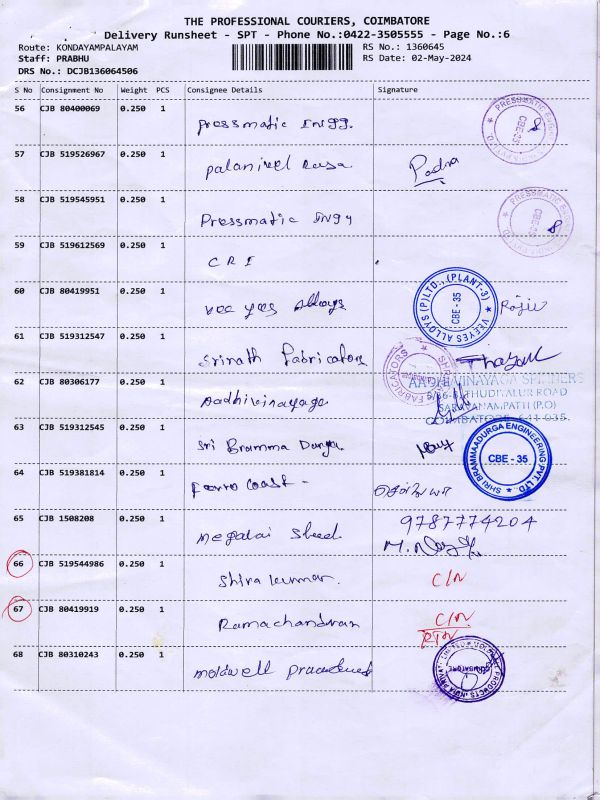 THE PROFESSIONAL COURIERS, COIMBATORE
Delivery Runsheet - SPT - Phone No.:0422-3505555 - Page No.:6
Route: KONDAYAMPALAYAM
RS No.: 1360645
Staff: PRABHU
RS Date: 02-May-2024
DRS No.: DCJB136064506
S No Consignment No Weight PCS Consignee Details Signature
56 CJB 80400069 0.250 1 Pressmatic Engg.
57 CJB 519526967 0.250 1 Palanivel Rasa Padma
58 CJB 519545951 0.250 1 Pressmatic Engg
59 CJB 519612569 0.250 1 CRI
60 CJB 80419951 0.250 1 Vee yes Alloys
VEEYES ALLOYS (P) LTD., (PLANT-3)
CBE - 35
61 CJB 519312547 0.250 1 Srinath Fabricators
62 CJB 80306177 0.250 1 Aadhivinayaga
AADHIVINAYAGA SPINNERS
ROAD
SARAVANAMPATTI (P.O)
COIMBATORE - 641 035
63 CJB 519312545 0.250 1 Sri Bramma Durga
SHRI BRAMMAADURGA ENGINEERING PVT. LTD.,
CBE - 35
64 CJB 519381814 0.250 1 Ferro Coast -
65 CJB 1508208 0.250 1 Megalai Steel 9787774204
66 CJB 519544986 0.250 1 Shiva kumar. C/N
67 CJB 80419919 0.250 1 Ramachandran C/N
RTN
68 CJB 80310243 0.250 1 Moldwell Products